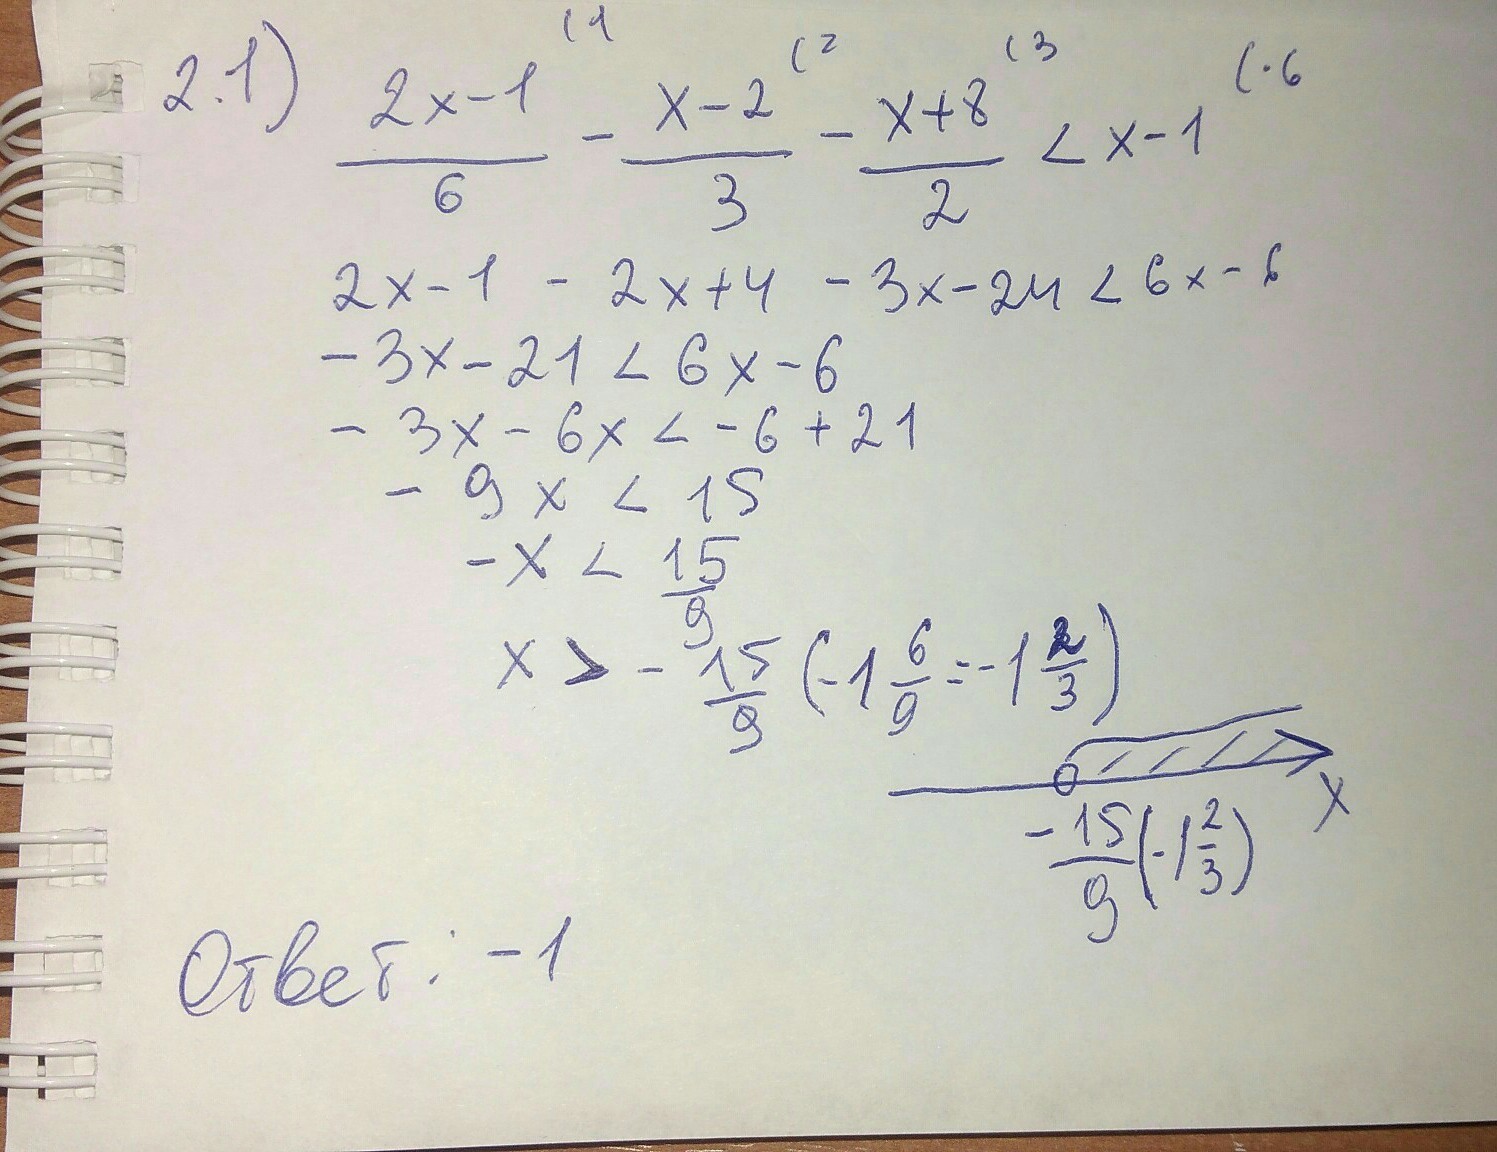 2.1) (2x-1)/6 (1 - (x-2)/3 (2 - (x+8)/2 (3 < x-1 (·6
2x-1 - 2x+4 - 3x-24 < 6x-6
-3x-21 < 6x-6
-3x-6x < -6+21
-9x < 15
-x < 15/9
x > -15/9 (-1 6/9 = -1 2/3)
x
-15/9 (-1 2/3)
Ответ: -1